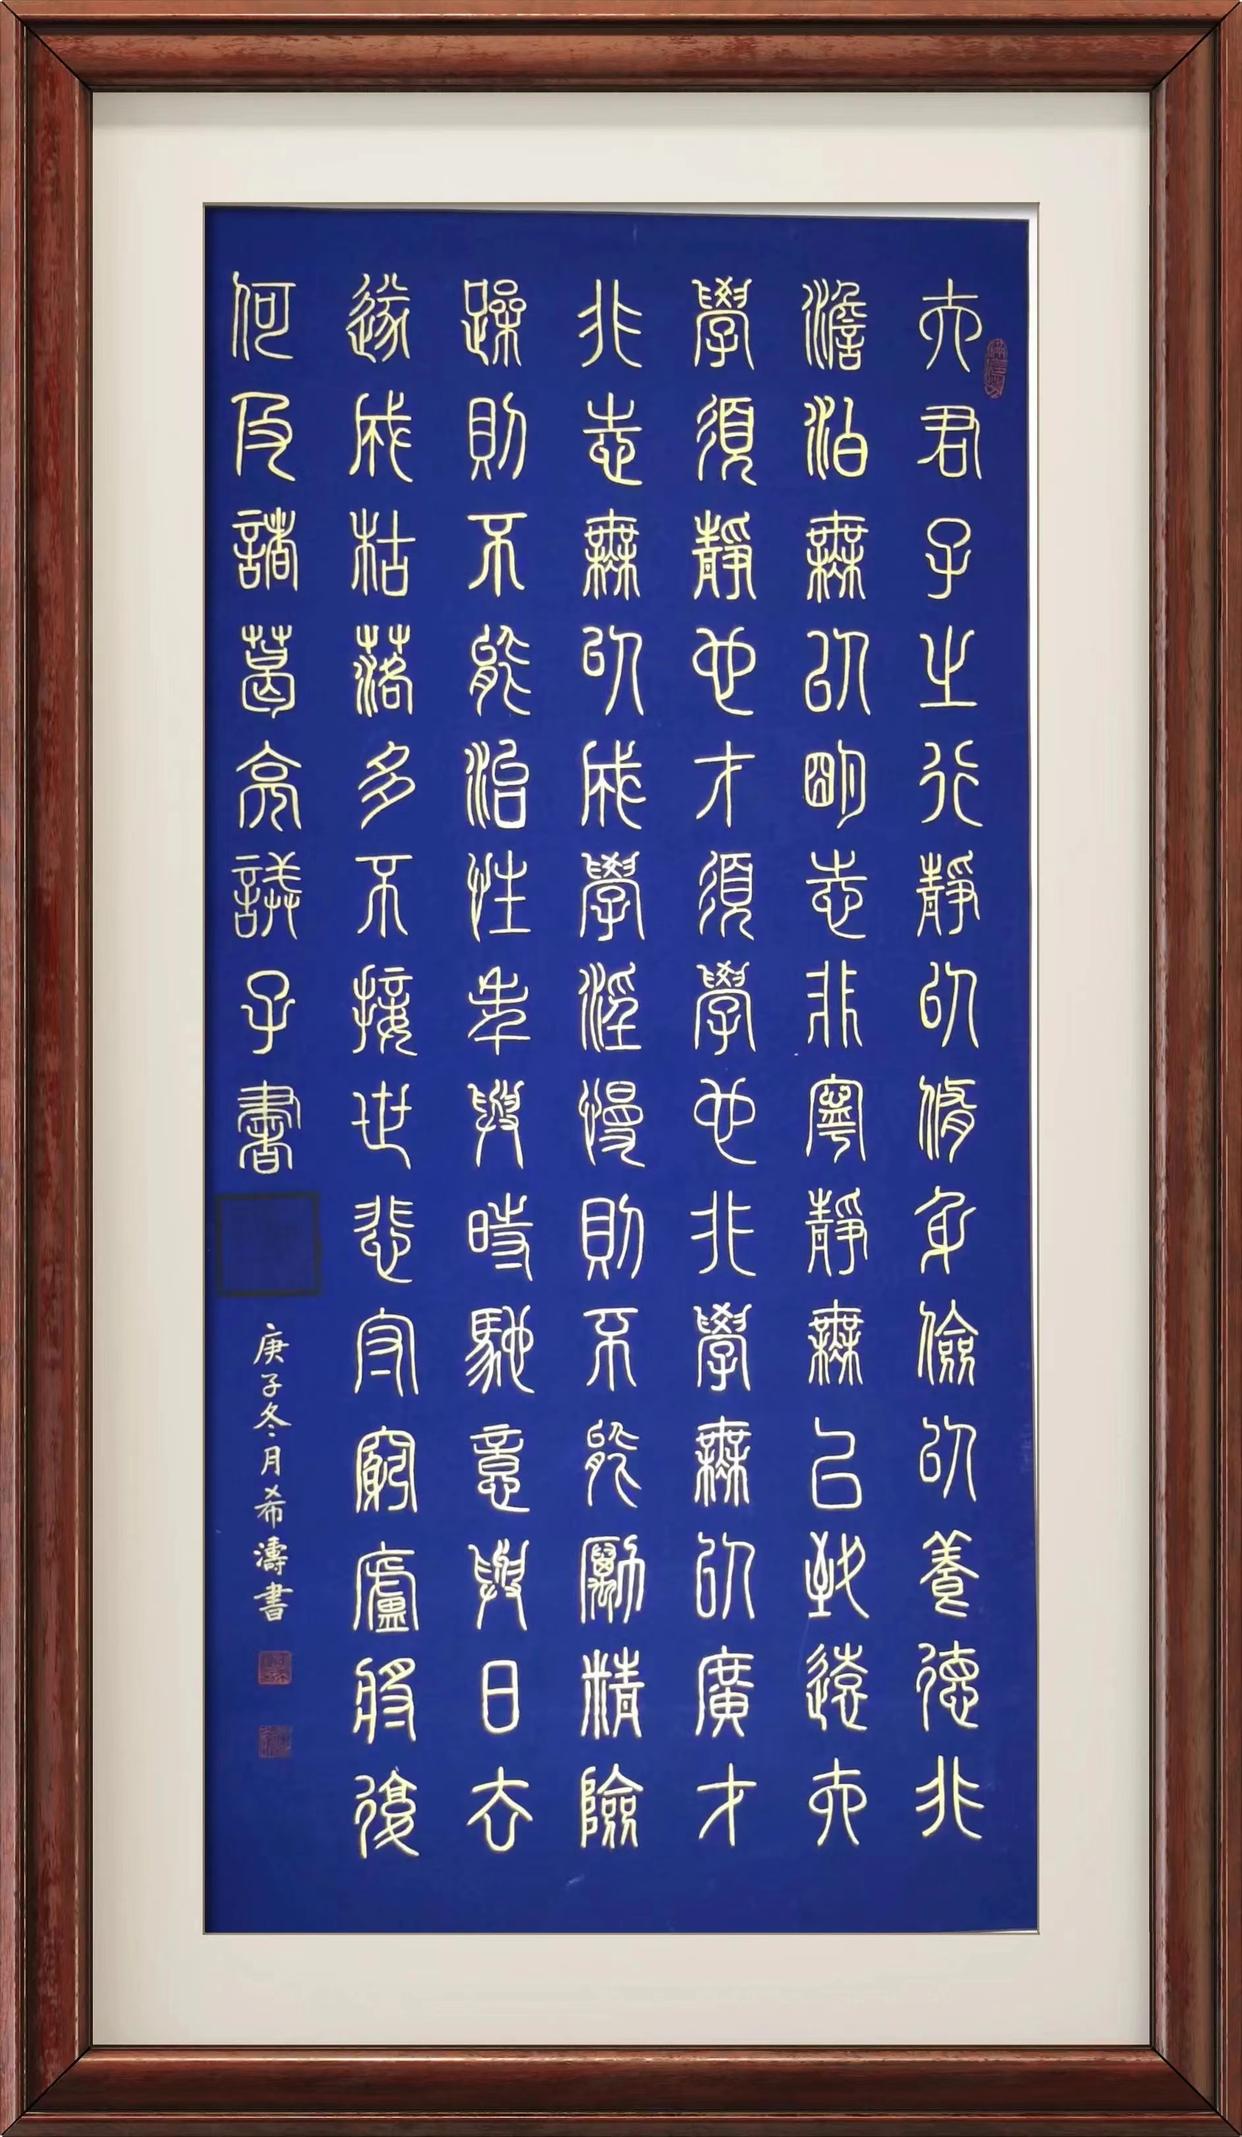 夫君子之行靜以脩身儉以養德非
澹泊無以明志非寧靜無以致遠夫
學須靜也才須學也非學無以廣才
非志無以成學淫慢則不能勵精險
躁則不能治性年與時馳意與日去
遂成枯落多不接世悲守窮廬將復
何及諸葛亮誡子書
庚子冬月希濤書